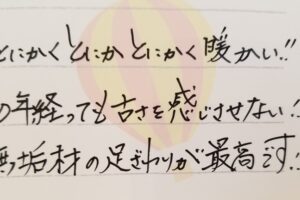 とにかく とにか とにかく 暖かい!!
年経っても 古さを感じさせない!
垢材の足ざわりが最高です!